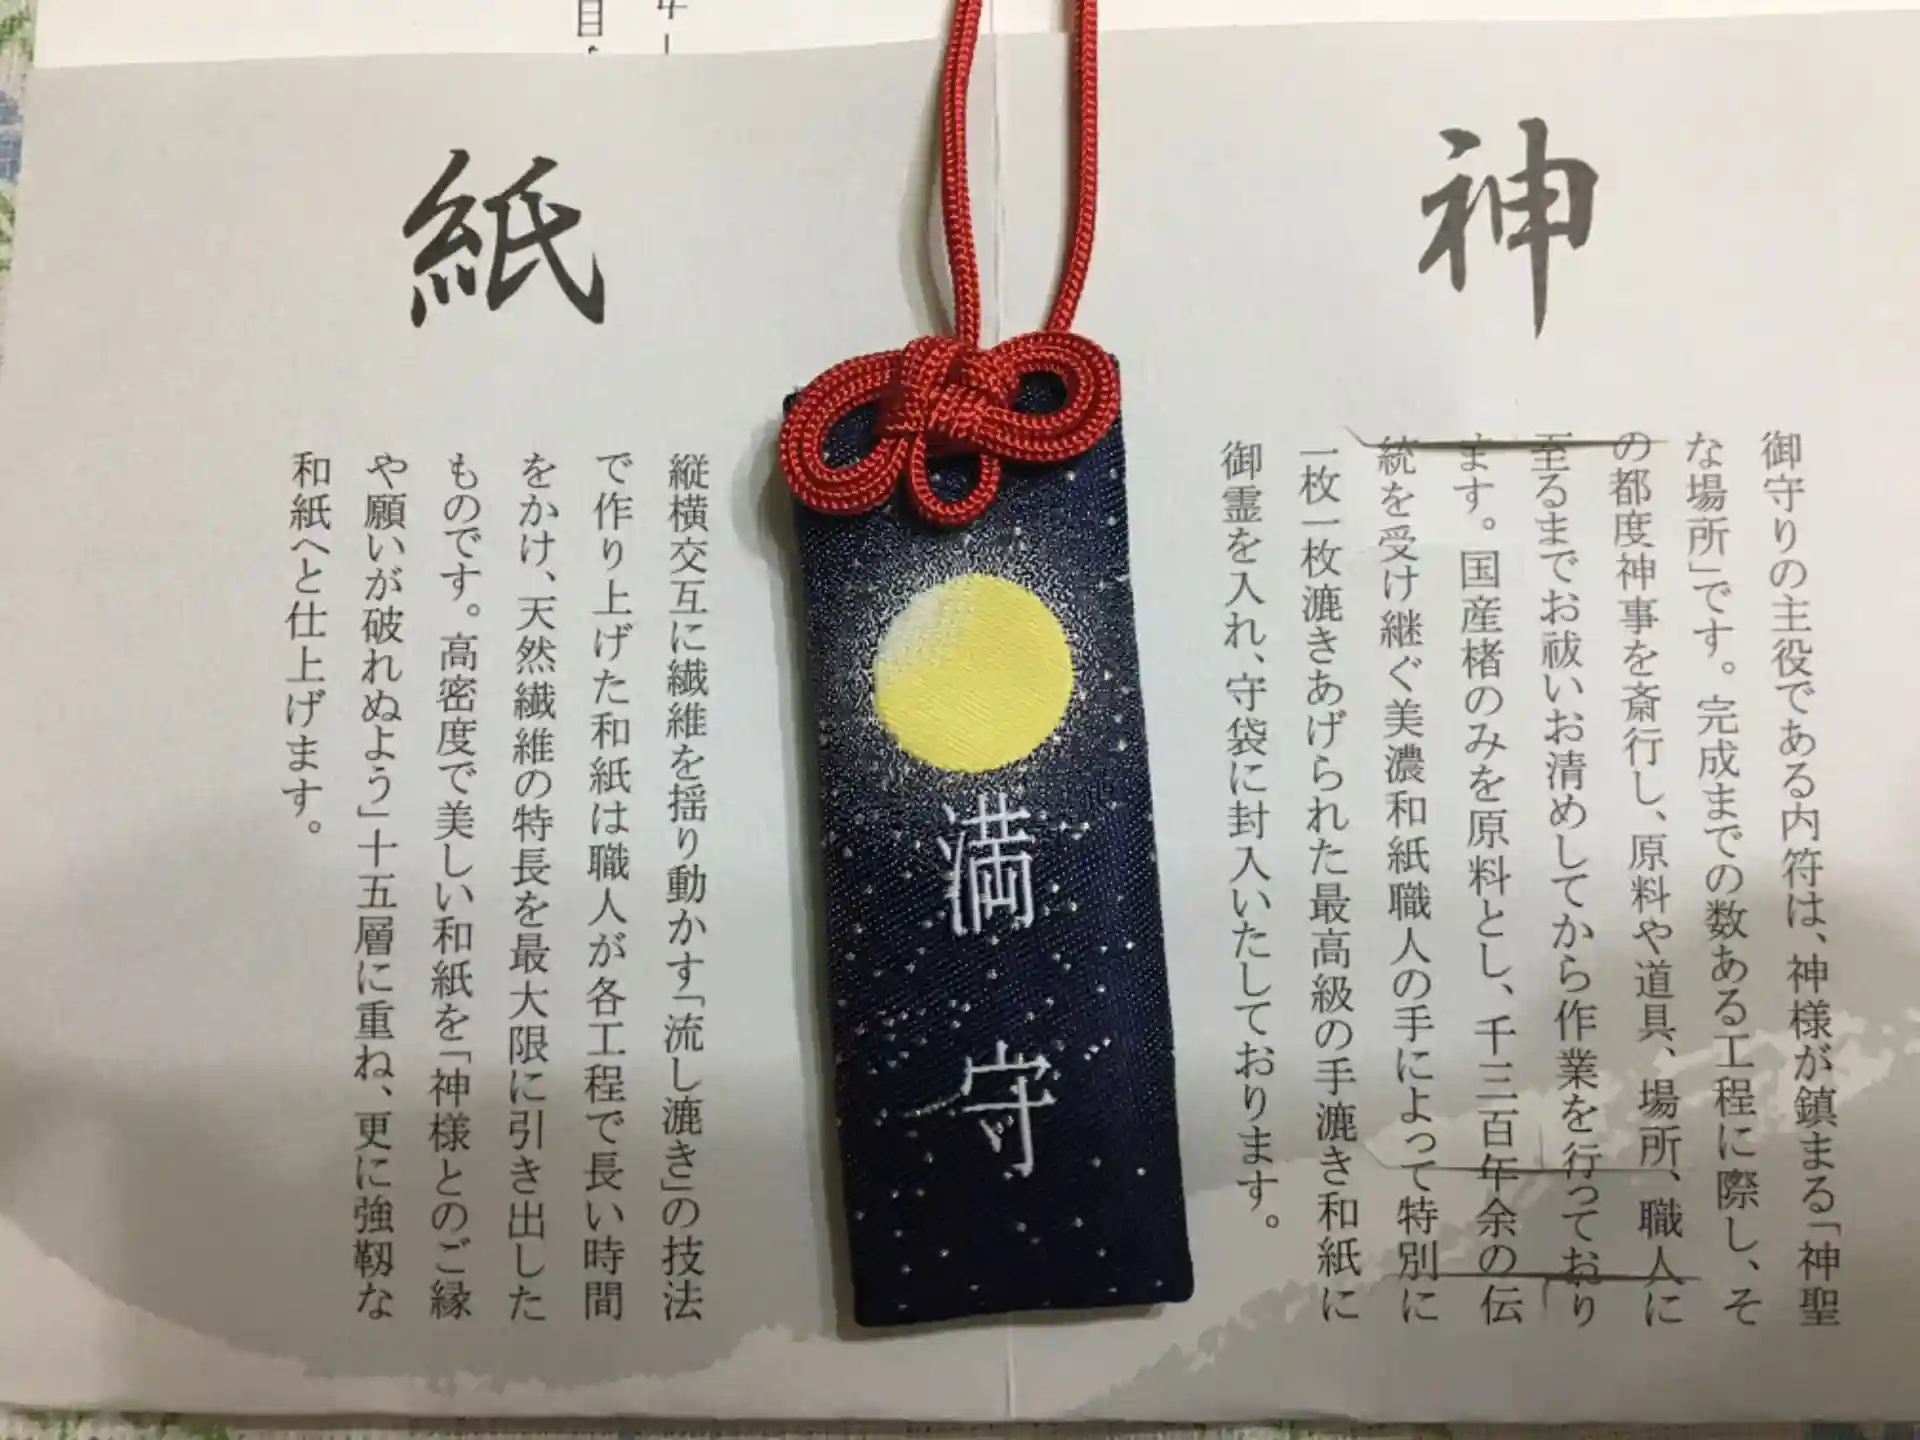 神
御守りの主役である内符は、神様が鎮まる「神聖
な場所」です。完成までの数ある工程に際し、そ
の都度神事を斎行し、原料や道具、場所、職人に
至るまでお祓いお清めしてから作業を行っており
ます。国産楮のみを原料とし、千三百年余の伝
統を受け継ぐ美濃和紙職人の手によって特別に
一枚一枚漉きあげられた最高級の手漉き和紙に
御霊を入れ、守袋に封入いたしております。
満守
紙
縦横交互に繊維を揺り動かす「流し漉き」の技法
で作り上げた和紙は職人が各工程で長い時間
をかけ、天然繊維の特長を最大限に引き出した
ものです。高密度で美しい和紙を「神様とのご縁
や願いが破れぬよう」十五層に重ね、更に強靱な
和紙へと仕上げます。
目。